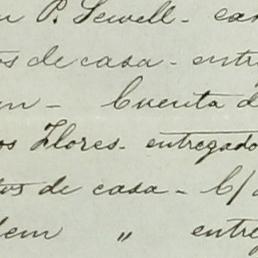 P. Sewell - ca
os de casa - entre
n - Cuenta d
os Flores - entregado
tos de casa - C/
dem " entre